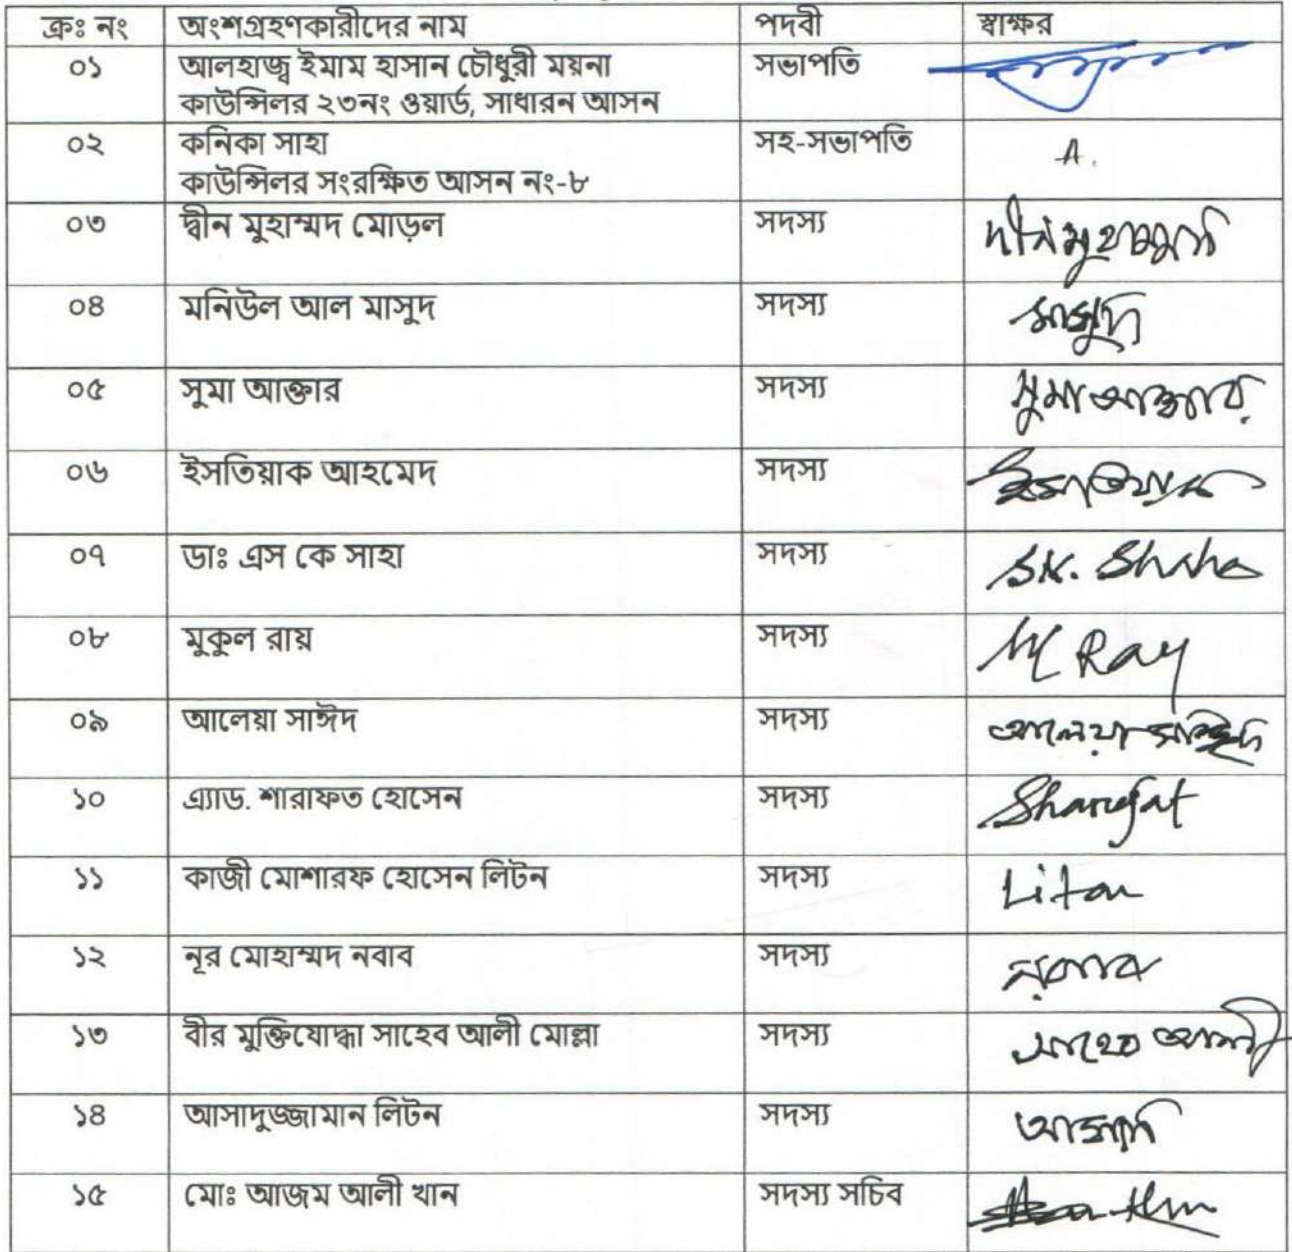 ক্রঃ নং অংশগ্রহণকারীদের নাম পদবী স্বাক্ষর
০১ আলহাজ্ব ইমাম হাসান চৌধুরী ময়না সভাপতি
কাউন্সিলর ২৩নং ওয়ার্ড, সাধারন আসন
০২ কনিকা সাহা সহ-সভাপতি A.
কাউন্সিলর সংরক্ষিত আসন নং-৮
০৩ দ্বীন মুহাম্মদ মোড়ল সদস্য দীন মুহাম্মদ
০৪ মনিউল আল মাসুদ সদস্য মাসুদ
০৫ সুমা আক্তার সদস্য সুমা আক্তার
০৬ ইসতিয়াক আহমেদ সদস্য ইসতিয়াক
০৭ ডাঃ এস কে সাহা সদস্য S.K. Shaha
০৮ মুকুল রায় সদস্য M Ray
০৯ আলেয়া সাঈদ সদস্য আলেয়া সাঈদ
১০ এ্যাড. শারাফত হোসেন সদস্য
১১ কাজী মোশারফ হোসেন লিটন সদস্য Liton
১২ নূর মোহাম্মদ নবাব সদস্য নবাব
১৩ বীর মুক্তিযোদ্ধা সাহেব আলী মোল্লা সদস্য সাহেব আলী
১৪ আসাদুজ্জামান লিটন সদস্য আসাদ
১৫ মোঃ আজম আলী খান সদস্য সচিব